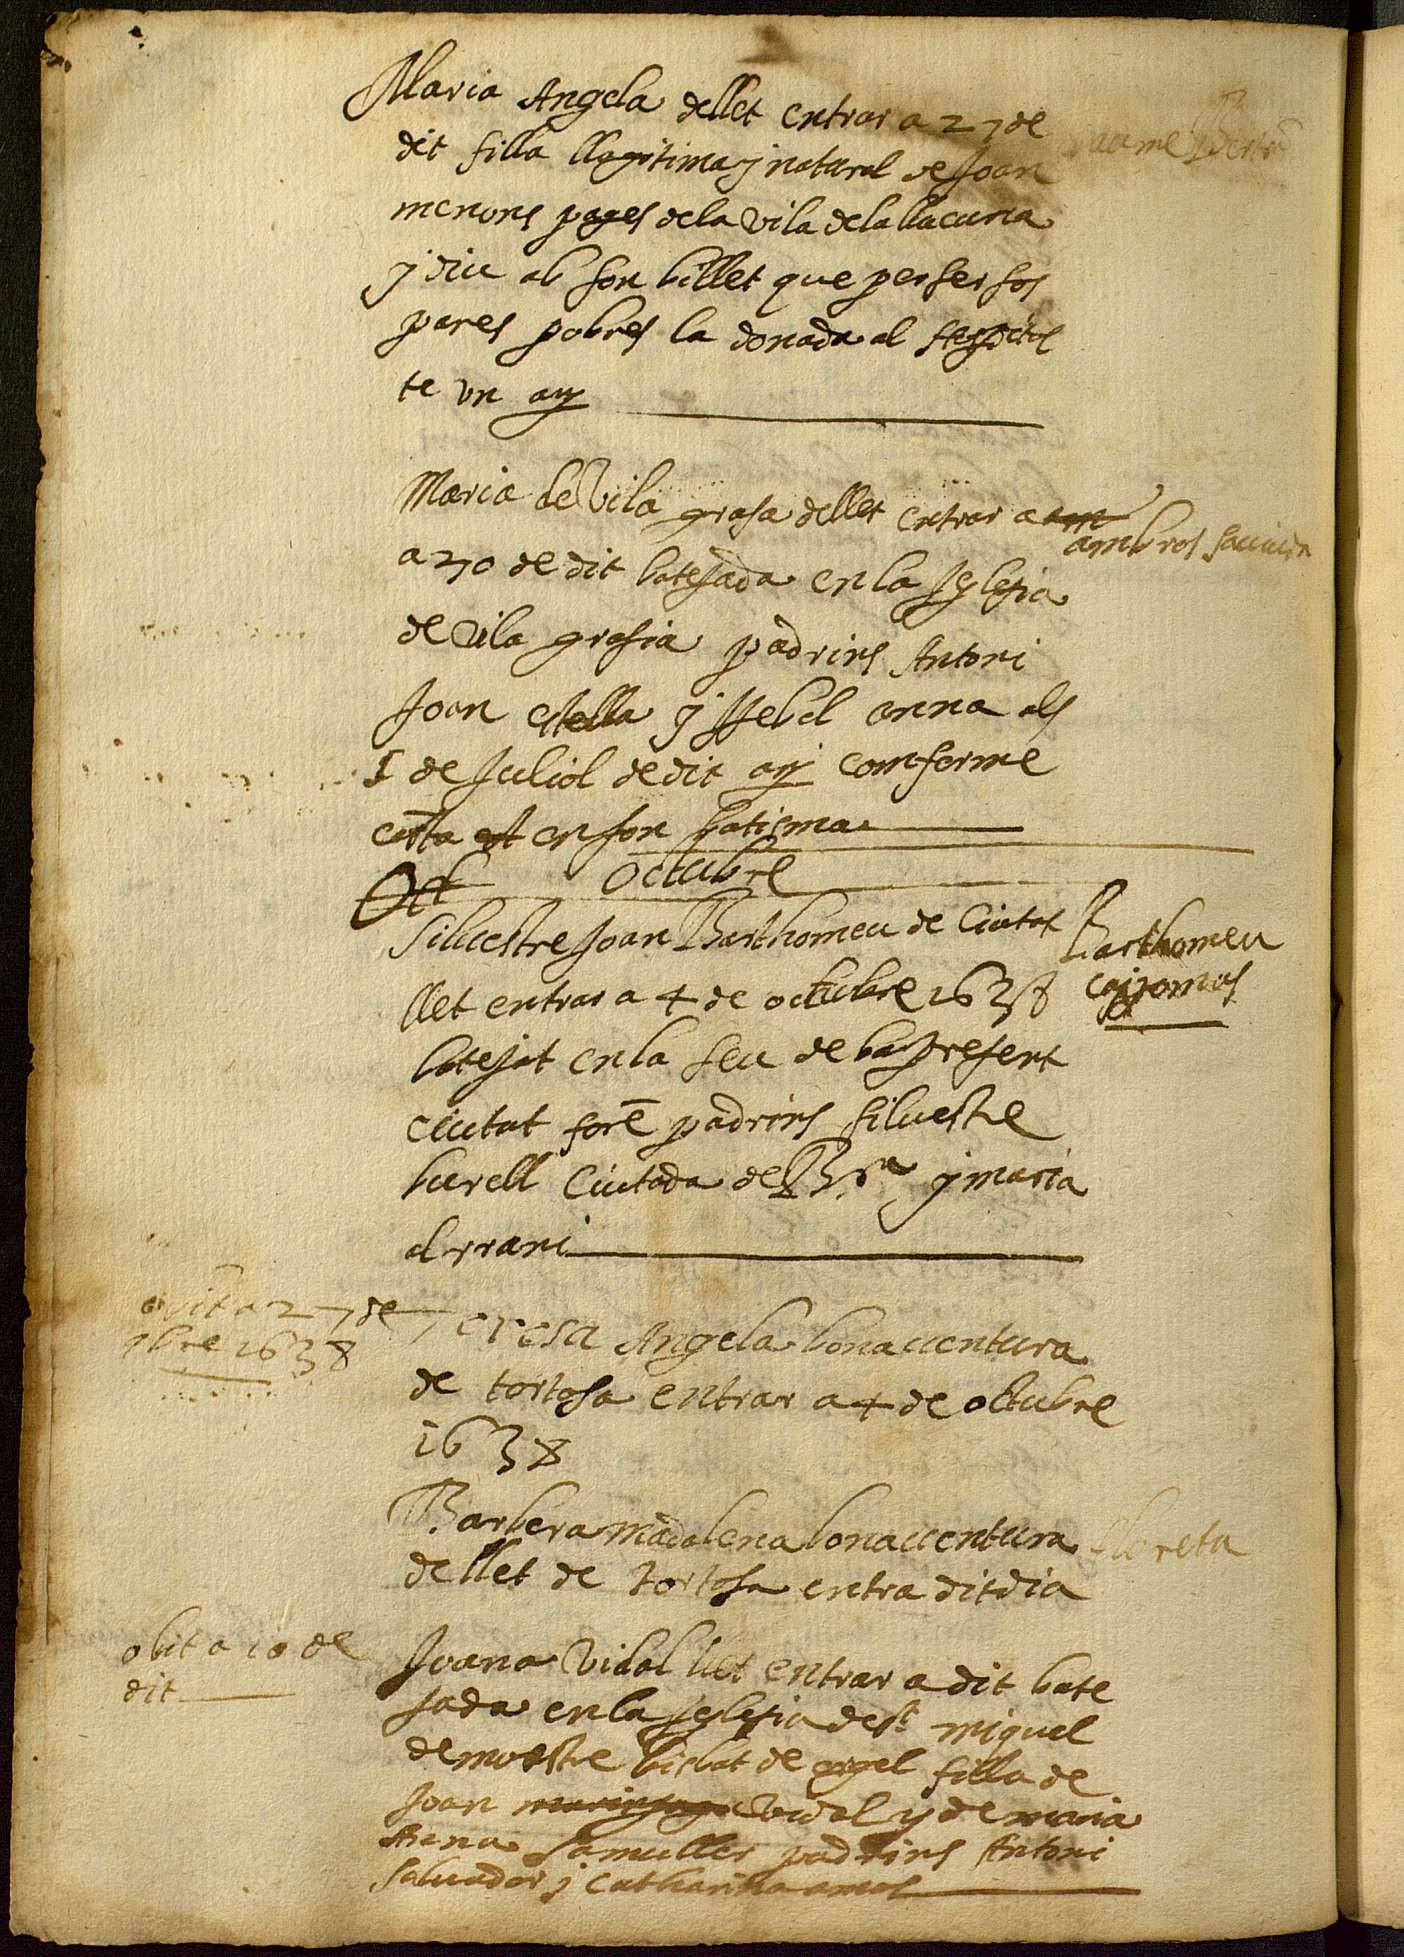 Maria Angela dellet entrar a 27 de
dit filla llegitima y natural de Joan
menons pages de la vila de la llacuna
y diu ab son billet que per ser sos
pares pobres la donada al
te un añ
Maria de Vila grasa dellet entrar a
ambros
a 270 de dit batejada en la Iglesia
de vila grasia padrins Antoni
Joan estella y Isebel anna als
5 de Juliol de dit añ comforme
en son batisma
Oct octubre
Silvestre Joan Barthomeu de Ciutat
Barthomeu
llet entrar a 4 de octubre 1638
batejat en la seu de la present
ciutat forē padrins silvestre
burell Ciutada de Bña y maria
alrrani
obit a 27 de
9bre 1638
Teresa Angela bonaventura
de tortosa entrar a 4 de octubre
1638
Barbera madalena bonaventura
lloreta
de llet de tortosa entra dit dia
obit a 10 de
dit
Joana Vidal llet entrar a dit bate
jada en la Iglesia de st miquel
de bisbat de filla de
Joan Vidal y de maria
sa muller padrins Antoni
Salvador y Catharina amos